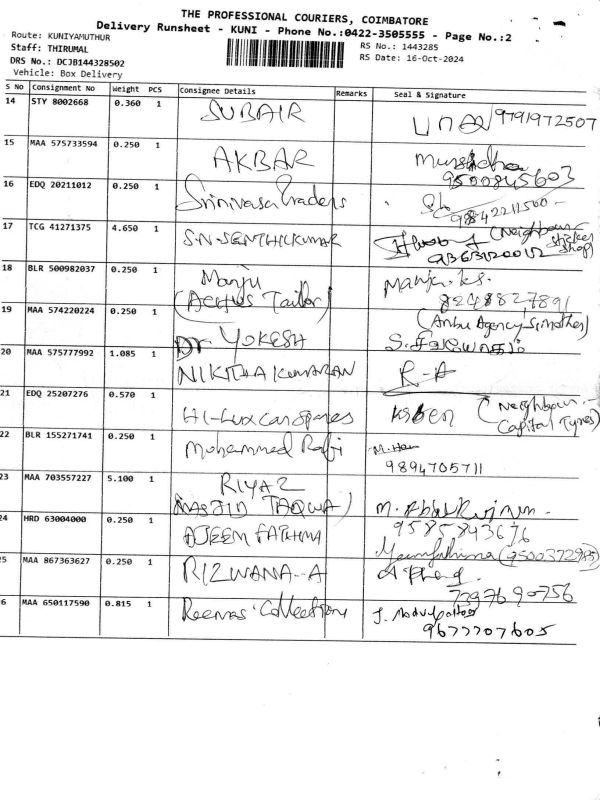 THE PROFESSIONAL COURIERS, COIMBATORE
Delivery Runsheet - KUNI - Phone No.:0422-3505555 - Page No.:2
Route: KUNIYAMUTHUR
Staff: THIRUMAL
RS No.: 1443285
DRS No.: DCJB144328502
RS Date: 16-Oct-2024
Vehicle: Box Delivery
S No Consignment No Weight PCS Consignee Details Remarks Seal & Signature
14 STY 8002668 0.360 1 SUBAIR 9791972507
15 MAA 575733594 0.250 1 AKBAR
9500845603
16 EDQ 20211012 0.250 1 Srinivasa Traders
9842211500
17 TCG 41271375 4.650 1 S.N.SENTHILKUMAR (Neighbour sticker shop)
9363120012
18 BLR 500982037 0.250 1 Manju Manju.k.s.
(Aechus Tailor) 8248827891
19 MAA 574220224 0.250 1 Dr YOKESH (Anbu Agency,
20 MAA 575777992 1.085 1 NIKITHA KUMARAN R-A
21 EDQ 25207276 0.570 1 Hi-Lux car spares (Neighbour -
Capital Tyres)
22 BLR 155271741 0.250 1 Mohammed Rafi
9894705711
23 MAA 703557227 5.100 1 RIYAZ
(MASJID TAQWA)
24 HRD 63004000 0.250 1 AJEEM FATHIMA 9585843676
(9500372985)
25 MAA 867363627 0.250 1 RIZWANA--A
7397690756
6 MAA 650117590 0.815 1 Reemas Collections
9677707605